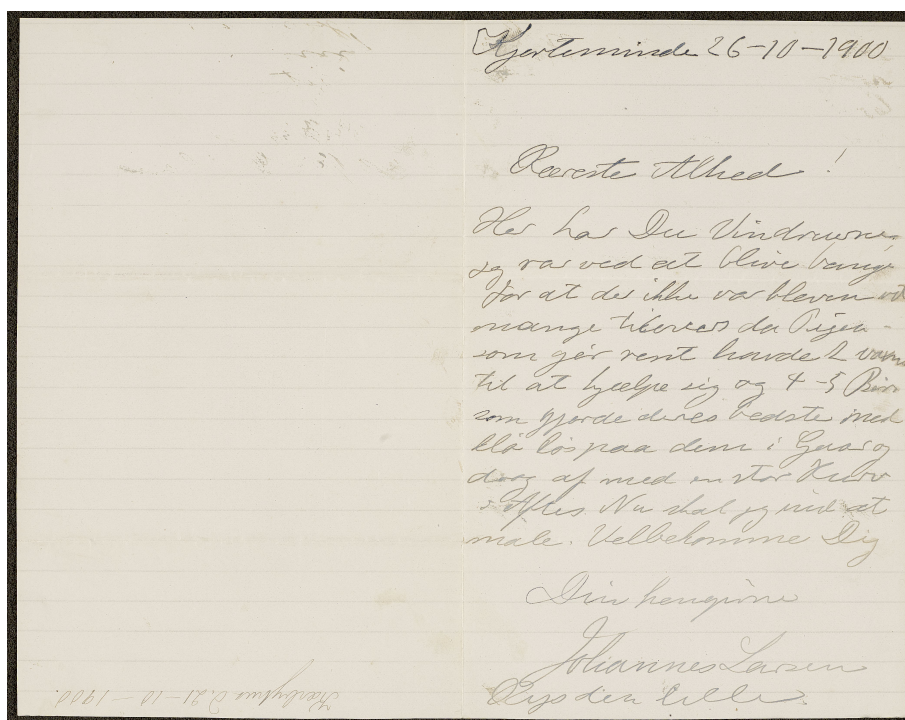 Kjerteminde 26-10-1900
Kæreste Alhed!
Her har Du Vindruerne.
jeg var ved at blive bange
for at der ikke var bleven
mange tilovers da Pigen
som gør rent havde 2
til at hjælpe sig og 4-5 Børn
som gjorde deres bedste med
klø løs paa dem i Gaar og
drog af med en stor Kurv
i Aftes Nu skal jeg ind at
male. Velbekomme Dig
Din hengivne
Johannes Larsen
Kys den lille.
21-10-1900.